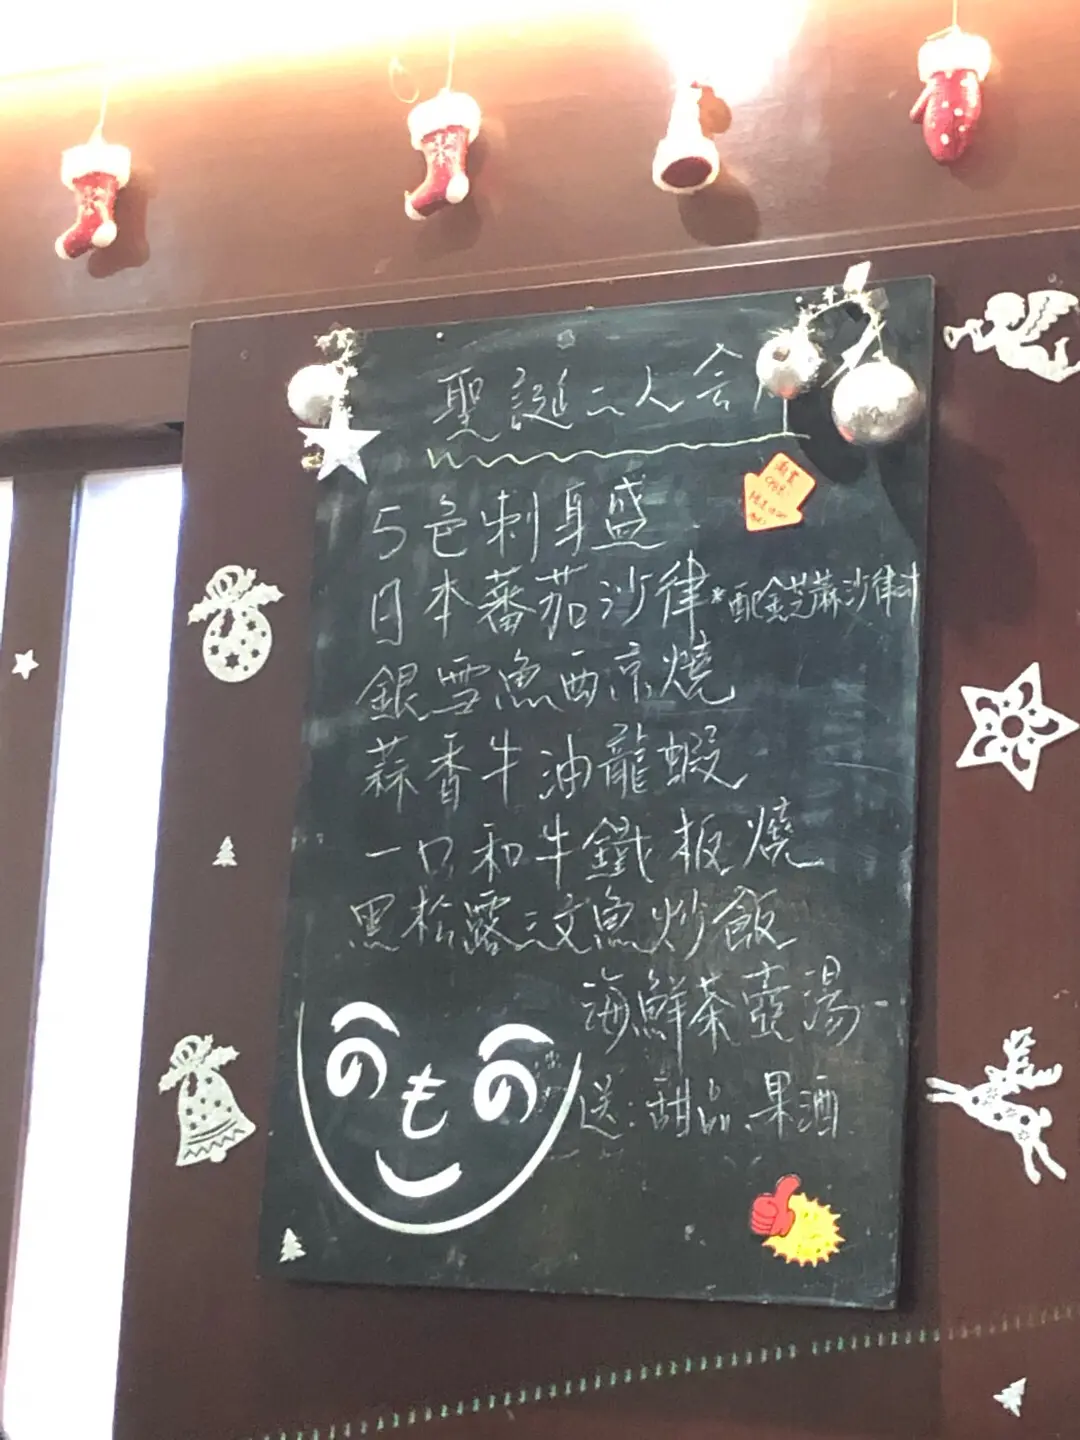 聖誕二人会席
5色刺身盛
日本蕃茄沙律*配金芝蔴沙律汁
銀雪魚西京燒
蒜香牛油龍蝦
一口和牛鐵板燒
黑松露三文魚炒飯
海鮮茶壺湯
送:甜品、果酒
の も の